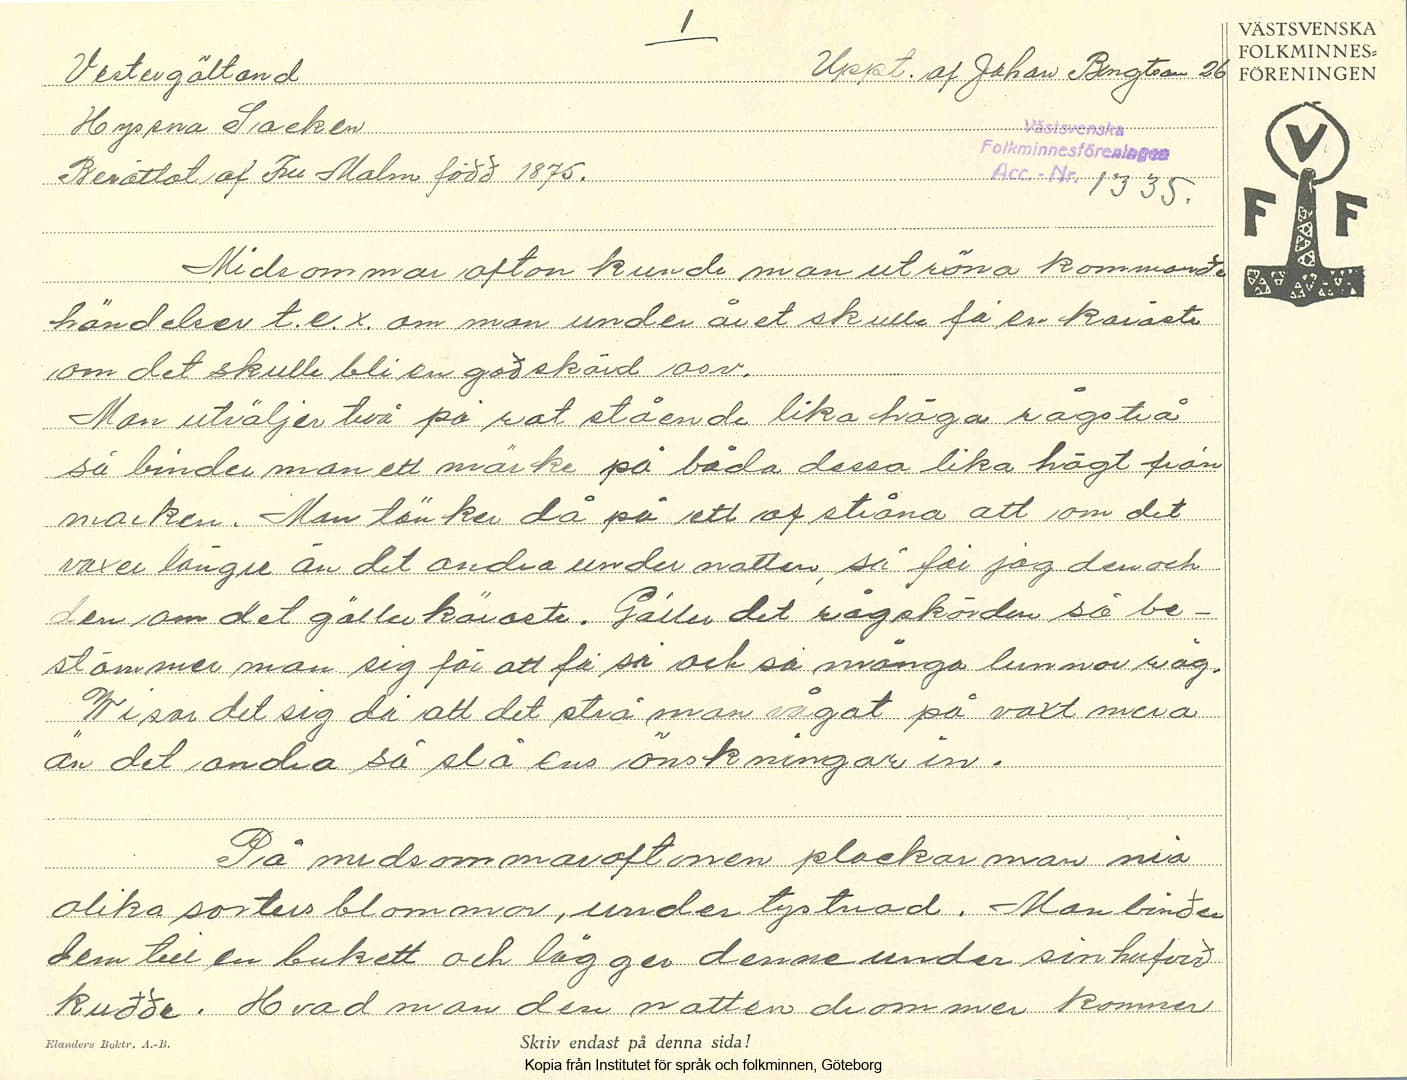 1
Vestergötland
Uppt. af Johan Bengtson 26
Hyssna Socken
Berättat af Fru Malm född 1875.
Västsvenska
Folkminnesföreningen
Acc. - Nr. 1335.
VÄSTSVENSKA
FOLKMINNES-
FÖRENINGEN
V
F F
Midsommar afton kunde man utröna kommande
händelser t.e.x. om man under året skulle få en käraste
om det skulle bli en god skörd osv.
Man utväljer två på rat stående lika höga rågstrå
så binder man ett märke på båda dessa lika högt från
marken. Man tänker då på ett af stråna att om det
vaxer längre än det andra under natten, så får jag den och
den om det gäller käraste. Gäller det rågskörden så be-
stämmer man sig för att få så och så många lunnor råg.
Wisar det sig då att det strå man vågat på vaxt mera
än det andra så slå ens önskningar in.
På midsommaraftonen plockar man nio
olika sorters blommor, under tystnad. Man binder
dem till en bukett och lägger denne under sin hufvud
kudde. Hvad man den natten drömmer kommer
Elanders Boktr. A.-B.
Skriv endast på denna sida!
Kopia från Institutet för språk och folkminnen, Göteborg